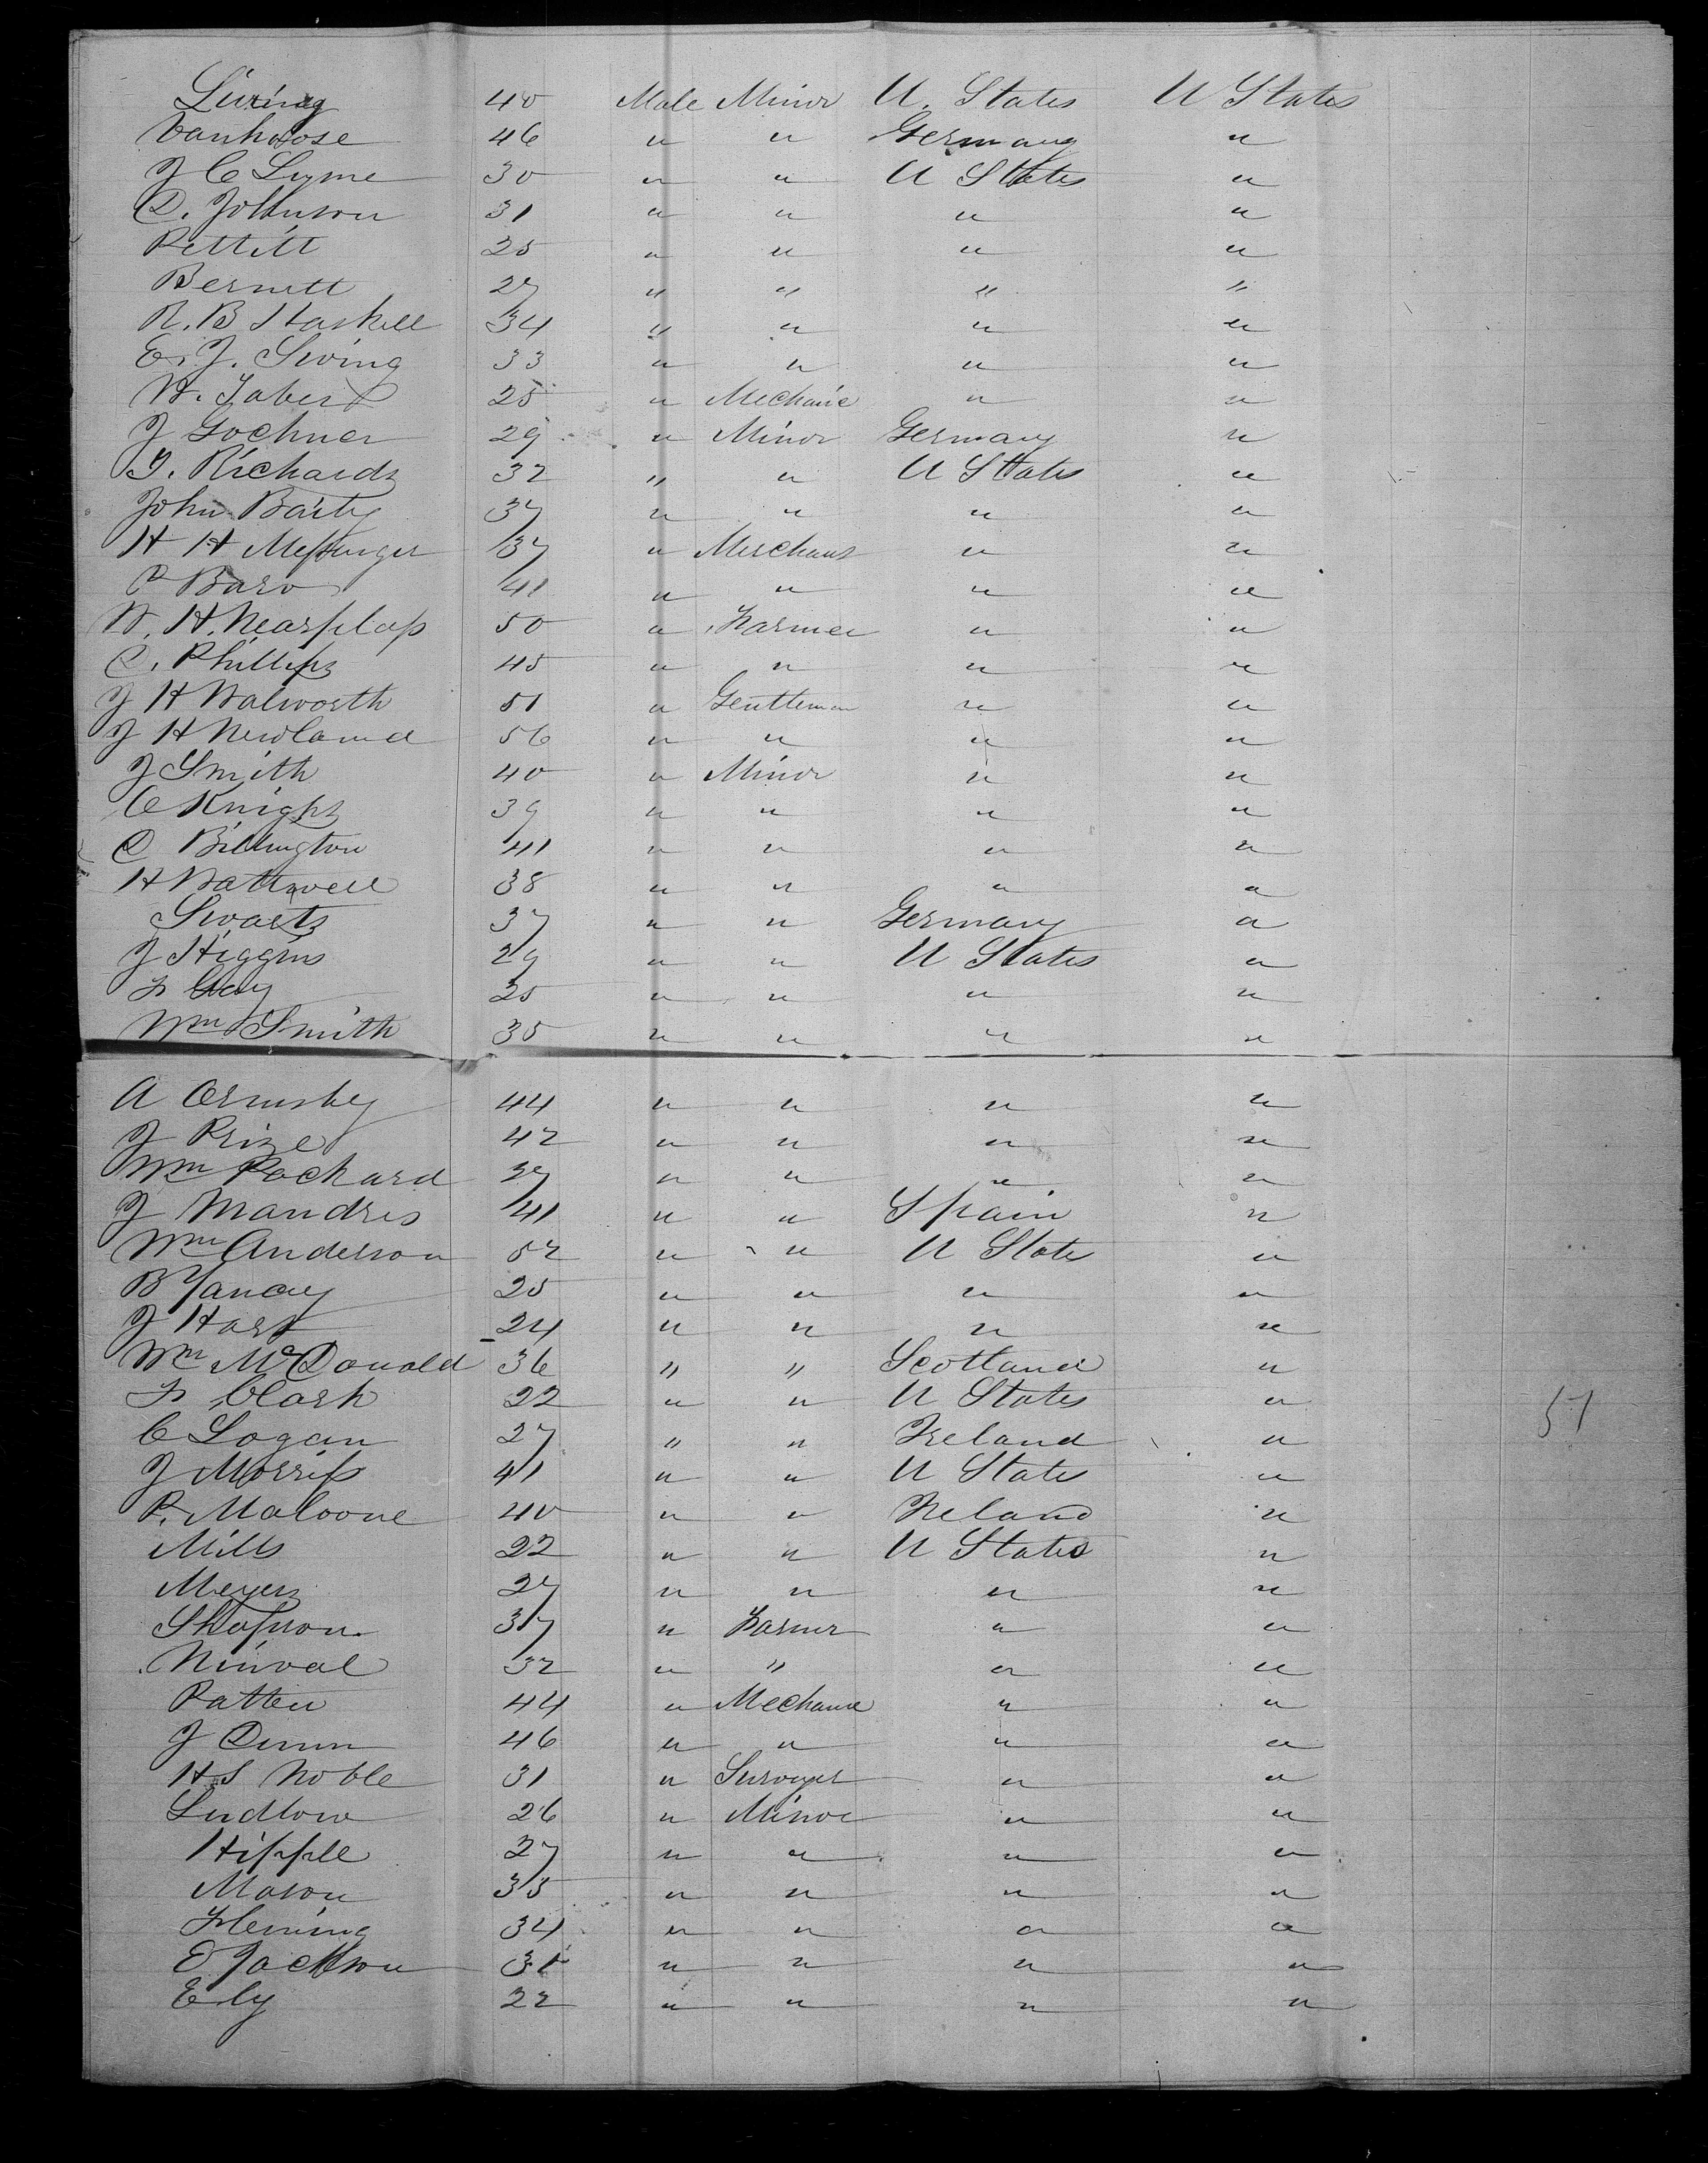 Living 40 Male Minor U. States U States
Vanhoose 46 " " Germany "
J C Lyme 30 " " U States "
D. Johnson 31 " " " "
Pettitt 25 " " " "
Bernett 27 " " " "
R. B Haskell 34 " " " "
E. J. Swing 33 " " " "
W. Taber 25 " Mechanic " "
J Gochner 29 " Minor Germany "
T. Richards 32 " " U States "
John Baity 37 " " " "
H H Messenger 37 " Merchant " "
P Baro 41 " " " "
W. H. 50 " Farmer " "
C. Phillips 45 " " " "
J H Walworth 51 " Gentleman " "
J H Newland 56 " " " "
J Smith 40 " Minor " "
C Knight 39 " " " "
D Billington 41 " " " "
H Wattwell 38 " " " "
Swarts 37 " " Germany "
J Higgins 29 " " U States "
F Gay 25 " " " "
Wm Smith 35 " " " "
A Ormsby 44 " " " "
J Prize 42 " " " "
Wm Packard 27 " " " "
J Mandres 41 " " Spain "
Wm Anderson 52 " " U State "
B Yancy 25 " " " "
J Hart 24 " " " "
Wm McDonald 36 " " Scotland "
F Clark 22 " " U States "
C Logan 27 " " Ireland "
J Morriss 41 " " U States "
P. Maloone 40 " " Ireland "
Mills 22 " " U States "
Meyers 27 " " " "
37 " Farmer " "
Ninval 32 " " " "
Patten 44 " Mechanic " "
J Dunn 46 " " " "
H S Noble 31 " Surveyer " "
Ludlow 26 " Minor " "
Hipple 27 " " " "
Mason 35 " " " "
Fleming 34 " " " "
E Jackson 31 " " " "
Ely 22 " " " "
51